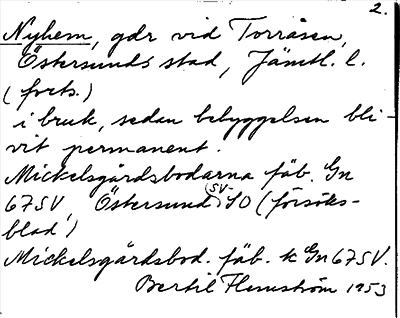 2.
Nyhem, gdr vid Torråsen,
Östersunds stad, Jämtl. l.
(forts.)
i bruk, sedan bebyggelsen bli-
vit permanent.
Mickelsgårdsbodarna fäb. Gn
67SV Östersund SV-SO (försöks-
blad!)
Mickelsgårdsbod. fäb. k Gn67SV.
Bertil Flemström 1953